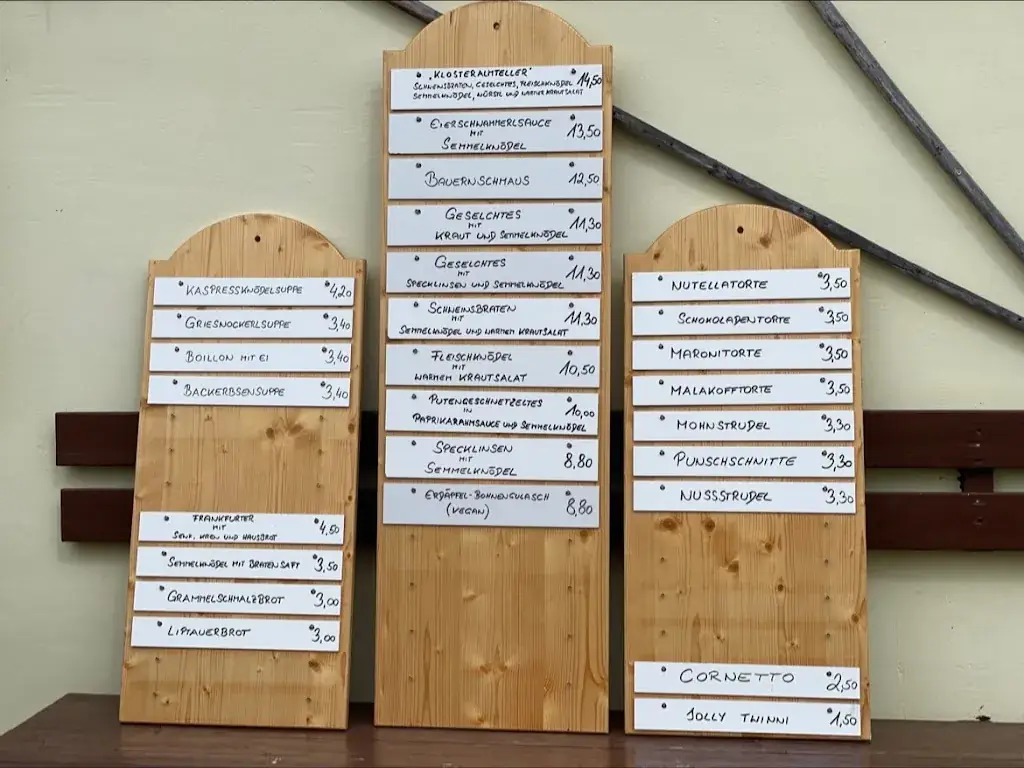 KASPRESSKNÖDELSUPPE 4,20
GRIESNOCKERLSUPPE 3,40
BOILLON MIT EI 3,40
BACKERBSENSUPPE 3,40
FRANKFURTER
MIT
SENF, KREN UND HAUSBROT 4,50
SEMMELKNÖDEL MIT BRATENSAFT 3,50
GRAMMELSCHMALZBROT 3,00
LIPTAUERBROT 3,00
"KLOSTERALMTELLER"
SCHWEINSBRATEN, GESELCHTES, FLEISCHKNÖDEL 14,50
SEMMELKNÖDEL, WÜRSTL UND WARMER KRAUTSALAT
EIERSCHWAMMERLSAUCE
MIT 13,50
SEMMELKNÖDEL
BAUERNSCHMAUS 12,50
GESELCHTES
MIT 11,30
KRAUT UND SEMMELKNÖDEL
GESELCHTES
MIT 11,30
SPECKLINSEN UND SEMMELKNÖDEL
SCHWEINSBRATEN
MIT 11,30
SEMMELKNÖDEL UND WARMEN KRAUTSALAT
FLEISCHKNÖDEL
MIT 10,50
WARMEN KRAUTSALAT
PUTENGESCHNETZELTES
IN 10,00
PAPRIKARAHMSAUCE UND SEMMELKNÖDEL
SPECKLINSEN
MIT 8,80
SEMMELKNÖDEL
ERDÄPFEL-BOHNENGULASCH
(VEGAN) 8,80
NUTELLATORTE 3,50
SCHOKOLADENTORTE 3,50
MARONITORTE 3,50
MALAKOFFTORTE 3,50
MOHNSTRUDEL 3,30
PUNSCHSCHNITTE 3,30
NUSSSTRUDEL 3,30
CORNETTO 2,50
JOLLY TWINNI 1,50